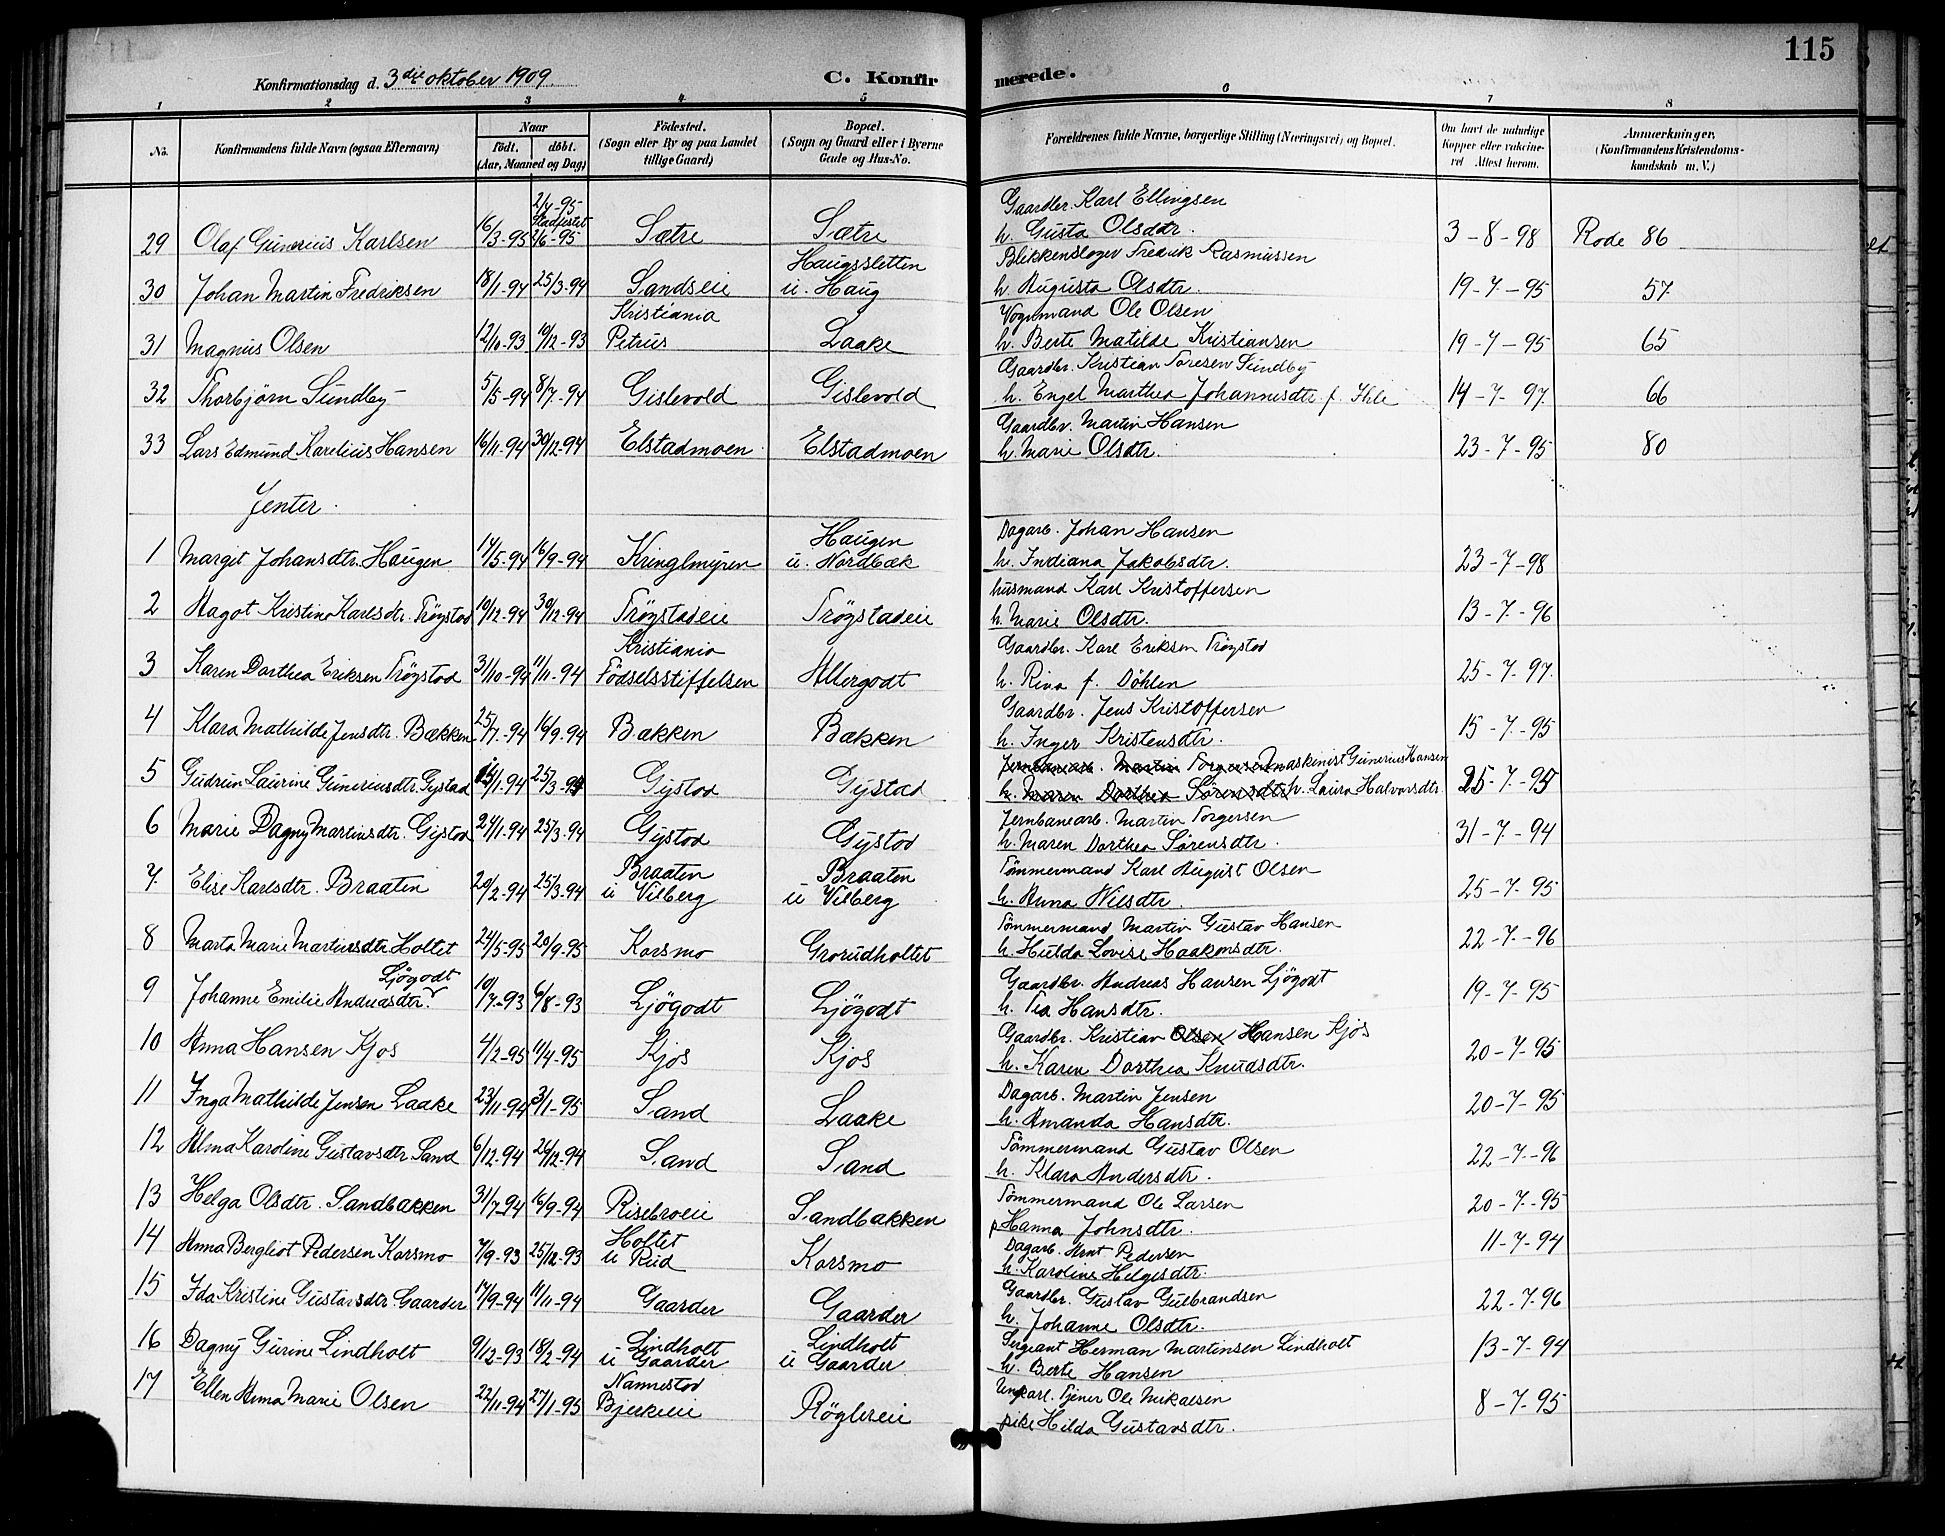 115
Konfirmationsdag d. 3die oktober 1909.
C. Konfirmerede.
1 2 3 4 5 6 7 8
No.
Konfirmandens fulde Navn (ogsaa Efternavn)
Naar
Födt. döbt.
(Aar, Maaned og Dag)
Födested.
(Sogn eller By og paa Landet
tillige Gaard)
Bopæl.
(Sogn og Gaard eller i Byerne
Gade og Hus-No.
Forældrenes fulde Navne, borgerlige Stilling (Næringsvei) og Bopæl.
Om havt de naturlige
Kopper eller vaccine-
ret Attest herom.
Anmærkninger,
(Konfirmandens Kristendoms-
kundskab m. V.)
2/4-95
Stadfestet
Gaardbr. Karl Ellingsen
29 Olaf Gunerius Karlsen 16/3-95 2/6-95 Sætre Sætre h. Gusta Olsdtr. 3-8-98 Rode 86
Haugssletten Blikkenslager Fredrik Rasmussen
30 Johan Martin Fredriksen 18/1-94 25/3-94 Sandseie u. Haug h. Augusta Olsdtr. 19-7-95 57
Kristiania Vognmand Ole Olsen
31 Magnus Olsen 12/10-93 19/12-93 Petrus Laake h. Berte Matilde Kristiansen 19-7-95 65
Gaardbr. Kristian Toresen Sundby
32 Thorbjörn Sundby 5/5-94 8/7-94 Gislevold Gislevold h. Engel Marthea Johannesdtr. f. Ihle 14-7-97 66
Gaardbr. Martin Hansen
33 Lars Edmund Karelius Hansen 16/11-94 30/12-94 Elstadmoen Elstadmoen h. Marie Olsdtr. 23-7-95 80
Jenter.
Haugen Dagarb. Johan Hansen
1 Margit Johansdtr. Haugen 14/5-94 16/9-94 Kringlmyren u. Nordbæk h. Indiana Jakobsdtr. 23-7-98
husmand Karl Kristoffersen
2 Hagot Kristine Karlsdtr. Tröystad 10/12-94 30/12-94 Tröystadeie Tröystadeie h. Marie Olsdtr. 13-7-96
Kristiania Gaardbr. Karl Eriksen Tröystad
3 Karen Dorthea Eriksen Tröystad 31/10-94 11/11-94 Födselsstiftelsen Allergodt h. Rina f. Döhlen 25-7-97
Gaardbr. Jens Kristoffersen
4 Klara Mathilde Jensdtr. Bækken 25/7-94 16/9-94 Bækken Bækken h. Inger Kristensdtr. 15-7-95
Jernbanearb. Martin Torgersen Maskinist Gunerius Hansen
5 Gudrun Laurine Guneriusdtr. Gystad 15/1-94 25/3-94 Gystad Gystad h. Maren Dorthea Sörensdtr. h. Laura Halvorsdtr. 25-7-95
Jernbanearb. Martin Torgersen
6 Marie Dagny Martinsdtr. Gystad 24/1-94 25/3-94 Gystad Gystad h. Maren Dorthea Sörensdtr. 31-7-94
Braaten Braaten Tömmermand Karl August Olsen
7. Elise Karlsdtr. Braaten 20/2-94 25/3-94 u Vilberg u Vilberg h. Anna Nilsdtr. 25-7-95
Tömmermand Martin Gustav Hansen
8 Marta Marie Martinsdtr Holtet 24/5-95 20/9-95 Korsmo Grorudholtet h. Hulda Lovise Haakonsdtr. 22-7-96
Ljögodt Gaardbr. Andreas Hansen Ljögodt
9 Johanne Emilie Andreasdtr. 10/7-93 6/8-93 Ljögodt Ljögodt h. Tea Hansdtr. 19-7-95
Gaardbr. Kristian Olsen Hansen Kjos
10 Anna Hansen Kjos 4/2-95 11/4-95 Kjos Kjos h. Karen Dorthea Knudsdtr. 20-7-95
Dagarb. Martin Jensen
11 Inga Mathilde Jensen Laake 23/11-94 3/1-95 Sand Laake h. Amanda Hansdtr. 20-7-95
Tömmermand Gustav Olsen
12 Alma Karoline Gustavsdtr Sand 6/12-94 26/12-94 Sand Sand h. Klara Andersdtr. 22-7-96
Tömmermand Ole Larsen
13 Helga Olsdtr. Sandbakken 31/7-94 16/9-94 Risebroeie Sandbakken p Hanna Johnsdtr. 20-7-95
Holtet Dagarb. Arnt Pedersen
14 Anna Bergliot Pedersen Korsmo 7/9-93 25/12-93 u Rud Korsmo h. Karoline Helgesdtr. 11-7-94
Gaardbr. Gustav Gulbrandsen
15 Ida Kristine Gustavsdtr. Gaarder 17/9-94 11/11-94 Gaarder Gaarder h. Johanne Olsdtr. 22-7-96
Lindholt Lindholt Sergeant Herman Martinsen Lindholt
16 Dagny Gurine Lindholt 9/12-93 18/2-94 u Gaarder u Gaarder h. Berte Hansen 13-7-94
Nannestad Ungkarl. Tjener Ole Mikalsen
17 Ellen Anna Marie Olsen 22/11-94 27/1-95 Bjerkeeie Röglereie pike Hilda Gustavsdtr. 8-7-95